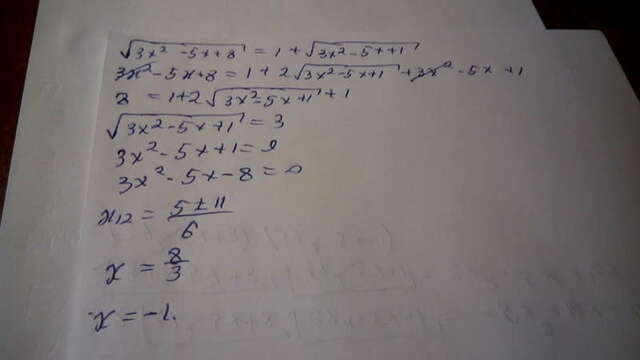 √(3x² - 5x + 8) = 1 + √(3x² - 5x + 1)
3x² - 5x + 8 = 1 + 2√(3x² - 5x + 1) + 3x² - 5x + 1
8 = 1 + 2√(3x² - 5x + 1) + 1
√(3x² - 5x + 1) = 3
3x² - 5x + 1 = 9
3x² - 5x - 8 = 0
x₁₂ = (5 ± 11)/6
x = 8/3
x = -1.